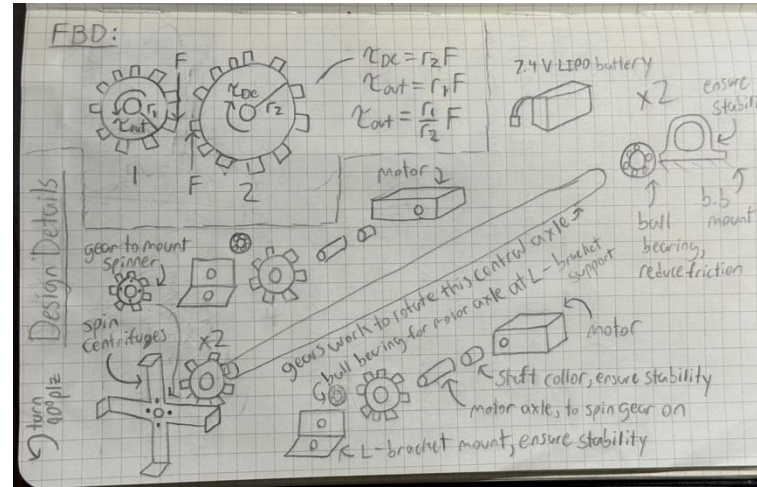 FBD:
F
τDC
r₂
r₁
τout
1
F
2
τDC = r₂F
τout = r₁F
τout = r₁/r₂ F
7.4 V LIPO battery
x2
ensure
ball
bearing,
reduce friction
b.b
mount
Design Details
turn
90° plz
motor
gear to mount
spinner
spin
centrifuges
x2
gears work to rotate this central axle
ball bering for motor axle at L-bracket
support
motor
shaft collor, ensure stability
motor axle, to spin gear on
L-bracket mount, ensure stability